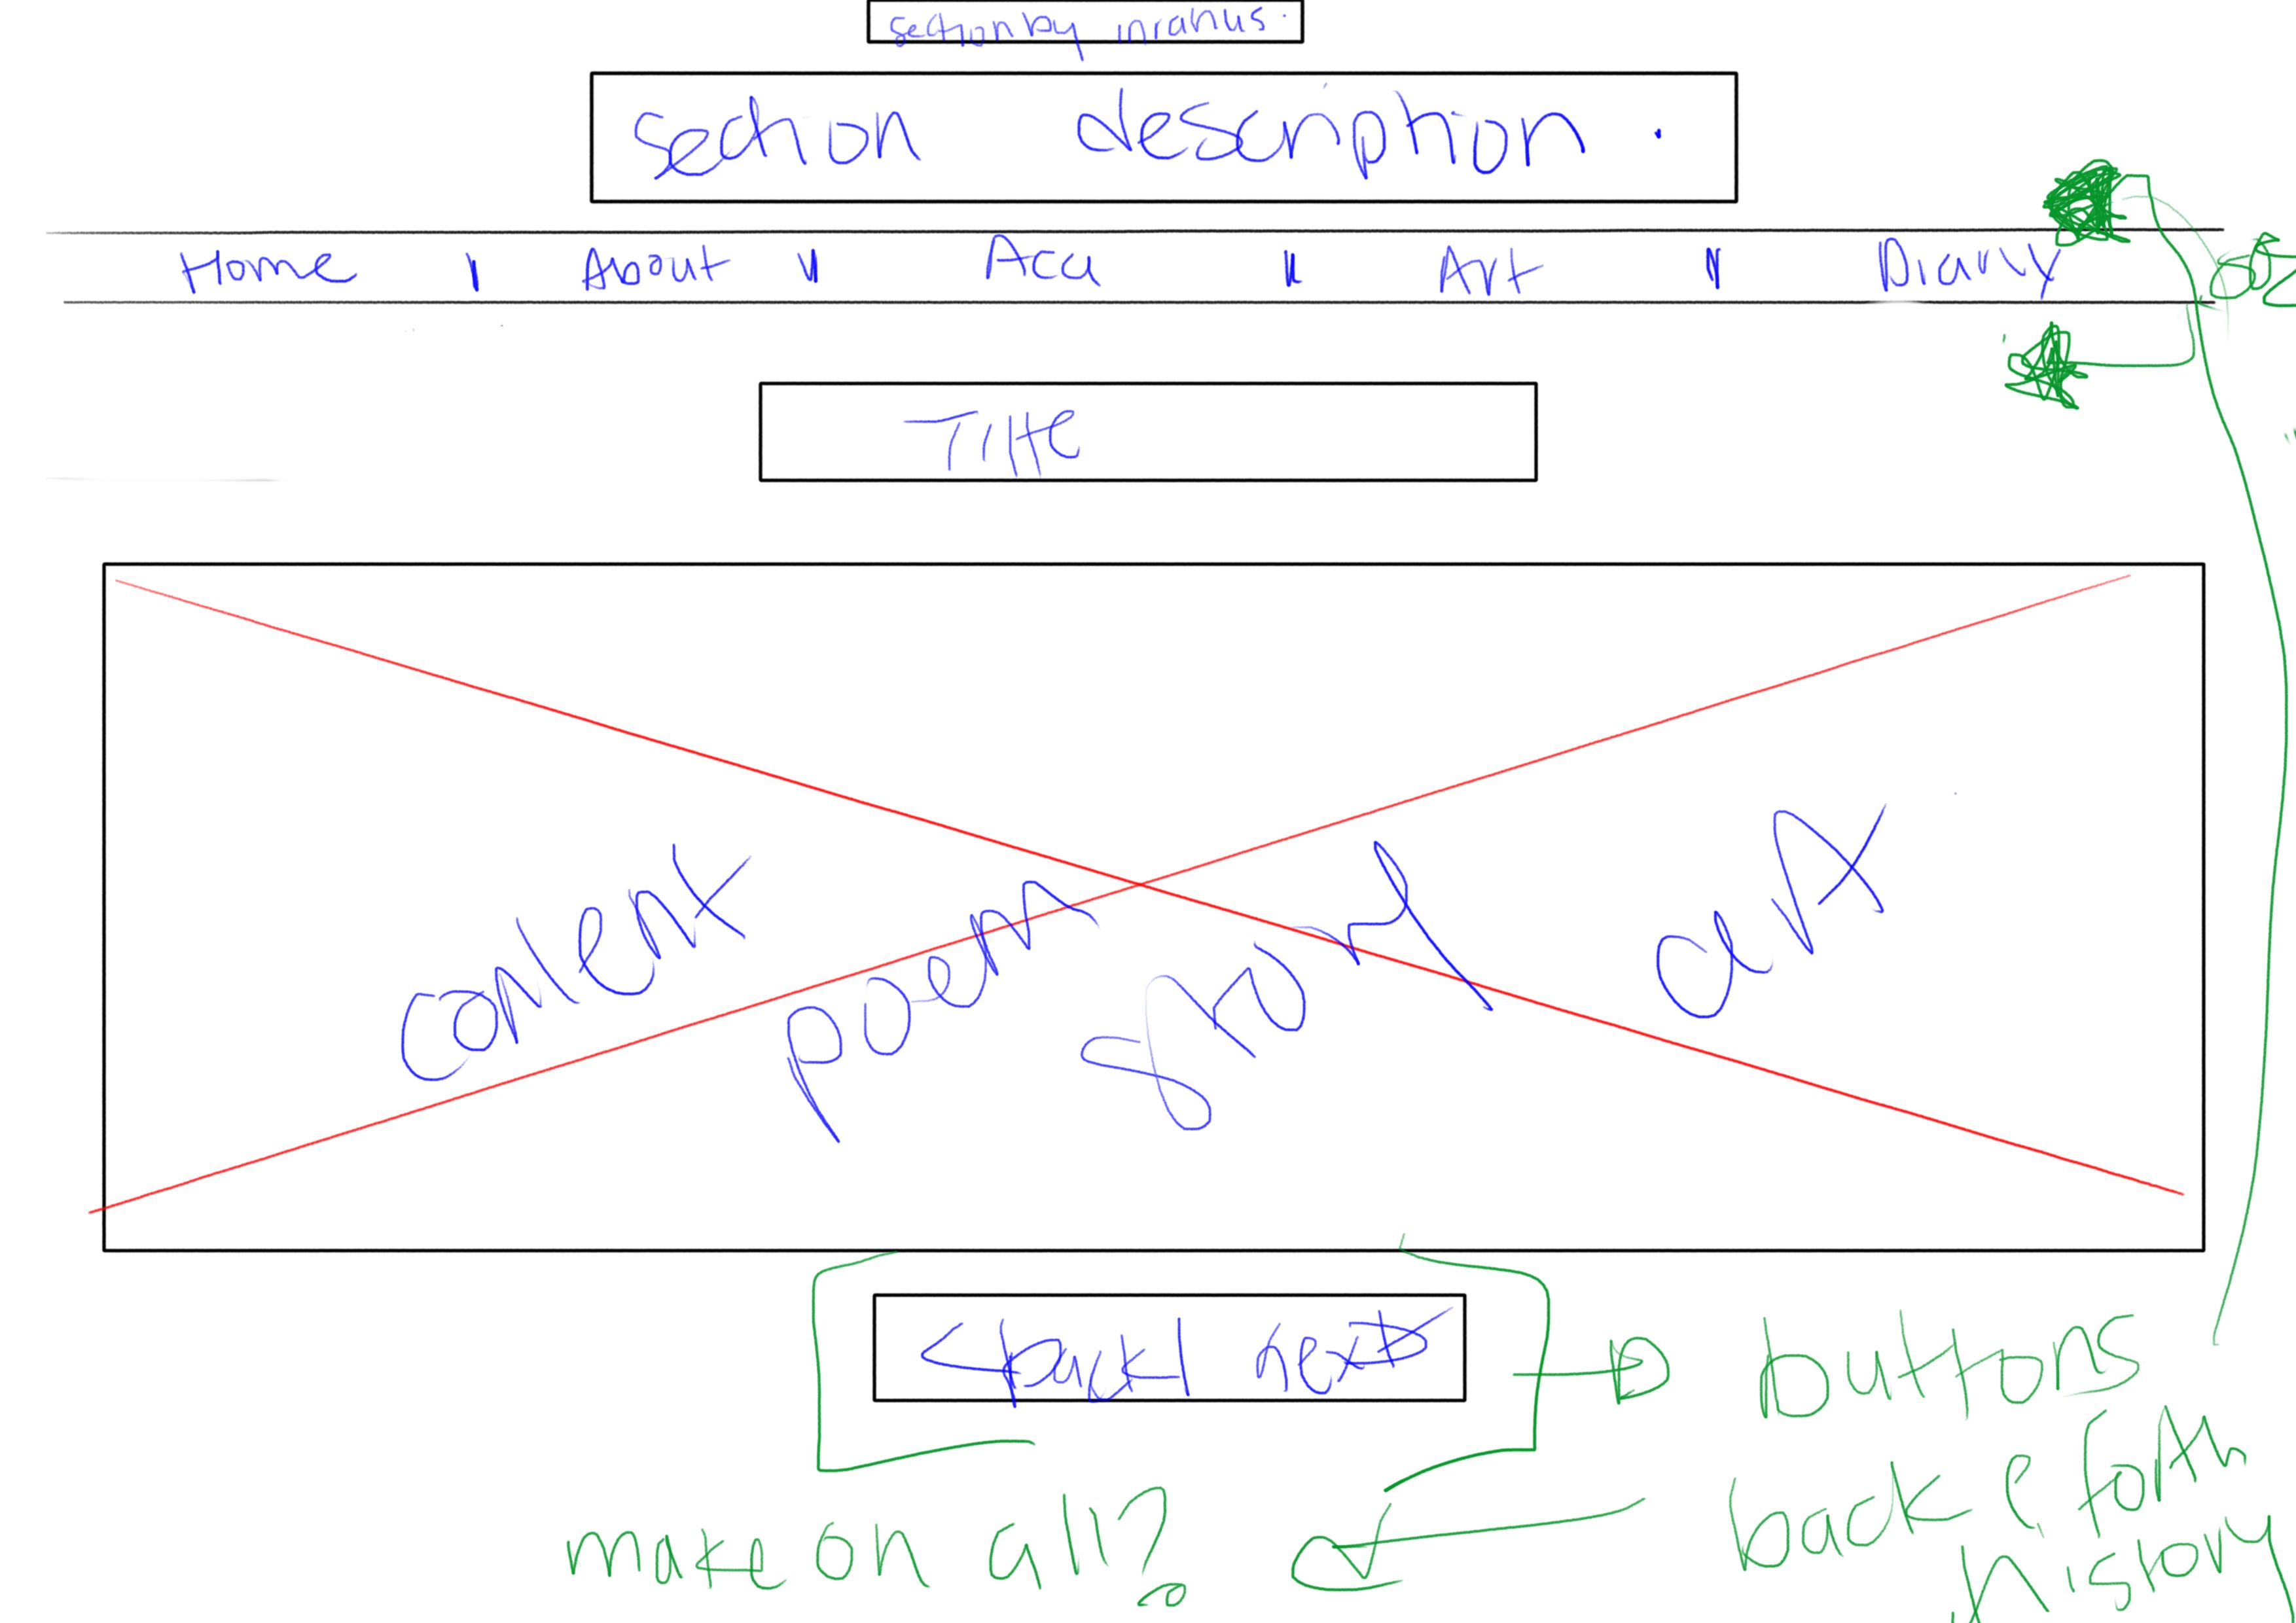 section by
section description.
Home | About | Aca | Art | Diary
Title
content poem story art
<back| next>
buttons
back & forth
history
make on all?